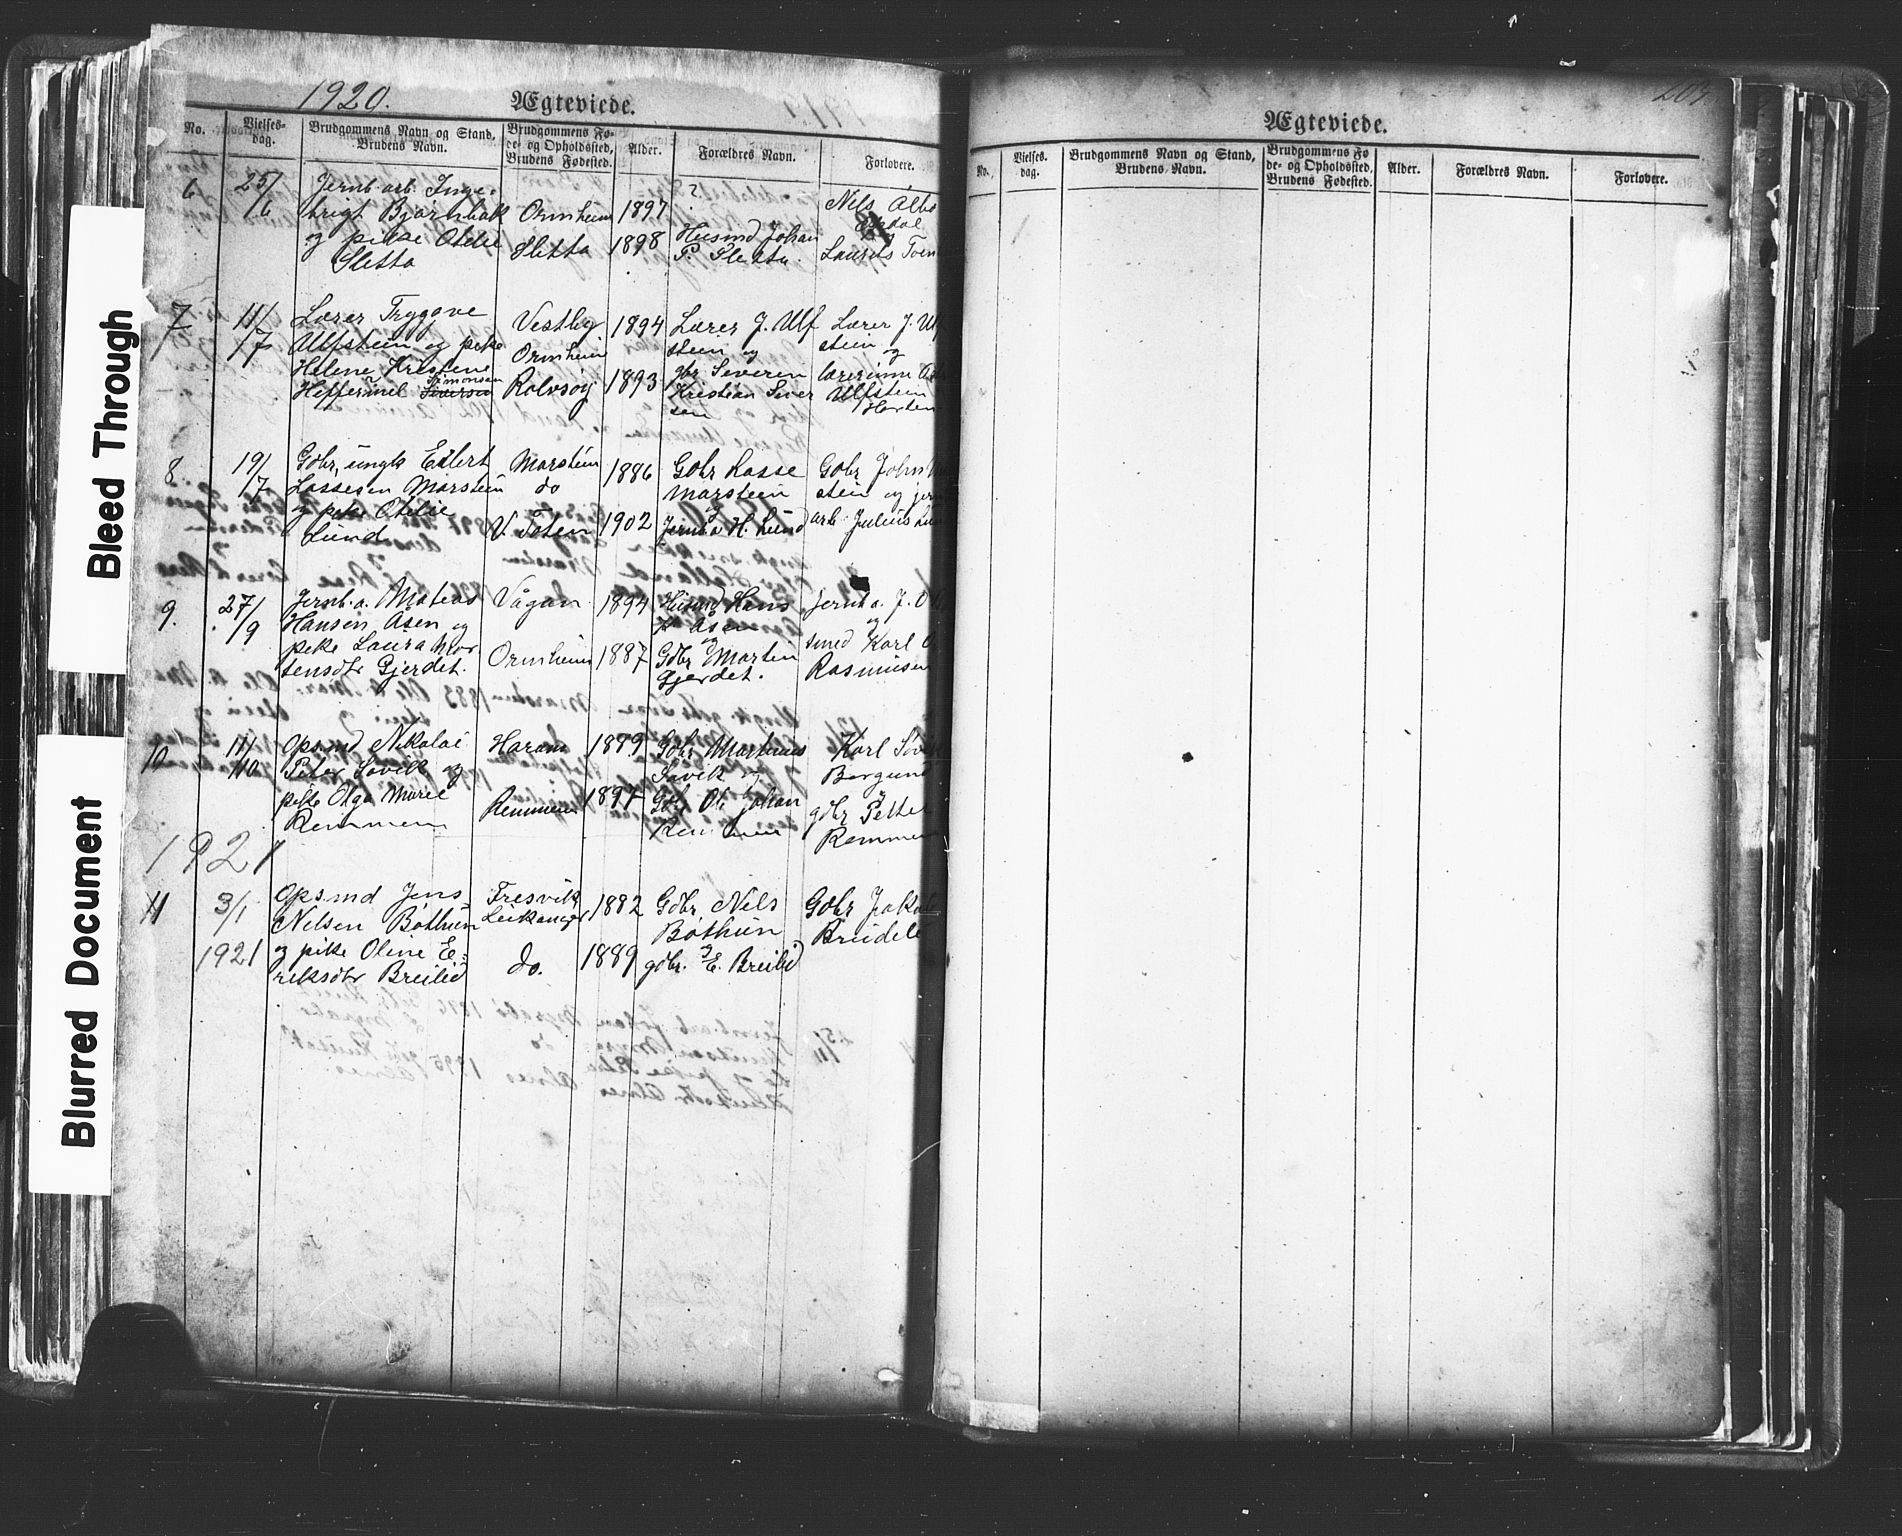 Bleed Through
Blurred Document
1920.
Ægteviede.
No.
Vielses-
dag.
Brudgommens Navn og Stand,
Brudens Navn.
Brudgommens Fø-
de- og Opholdssted,
Brudens Fødested.
Alder.
Forældres Navn.
Forlovere.
6
25/
/6
Jernb. arb. Inge-
brigt Bjørnbak
og pike Otelie
Sletta
Ormheim
Sletta
1897
1898
?
Husmd Johan
P. Sletta.
Nils
Laurits
7
11/
/7
Lærer Tryggve
Ulfstein og pike
Helene Kristene
Heffermel Simonsen
Vestby
Ormheim
Rolvsøy
1894
1893
Lærer J. Ulf
stein og
gbr Severen
Kristian Sever
sen
Lærer J. Ulf
stein og
lærerinne
Ulfstein
Horten
8
19/
/7
Gdbr, ungk Edlert
Lassesen Marstein
og pike Otelie
Lund
Marstein
do
V. Toten
1886
1902
Gdbr Lasse
Marstein
og
Jernb a H. Lund
Gdbr John
stein og jern
arb. Julius
9.
27/
/9
Jernb. a. Mateas
Hansen Åsen og
pike Laura Mor
tensdtr Gjerdet.
Vågan.
Ormheim
1894
1887
Husmd Hans
K Åsen
og
Gdbr Morten
Gjerdet.
Jernb a. J.
og
smed Karl
Rasmusen
10
11/
/10
Opsmd Nikolai
Peter Søvik og
pike Olga Marie
Remmem
Haram
Remmem
1889
1897
Gdbr Martinus
Søvik og
Gdbr Ole Johan
Remmem
Karl
Borgund
og
gdbr Petter
Remmem
1921
11
3/1
1921
Opsmd Jens
Nelsen Bothun
og pike Oline E-
reksdtr Breilid
Fresvik
Leikanger
do.
1882
1889
Gdbr Nils
Bothun
og
gdbr. E. Breilid
Gdbr Jakob
Brudeli
209
Ægteviede.
No.
Vielses-
dag.
Brudgommens Navn og Stand,
Brudens Navn.
Brudgommens Fø
de- og Opholdssted,
Brudens Fødested.
Alder.
Forældres Navn.
Forlovere.